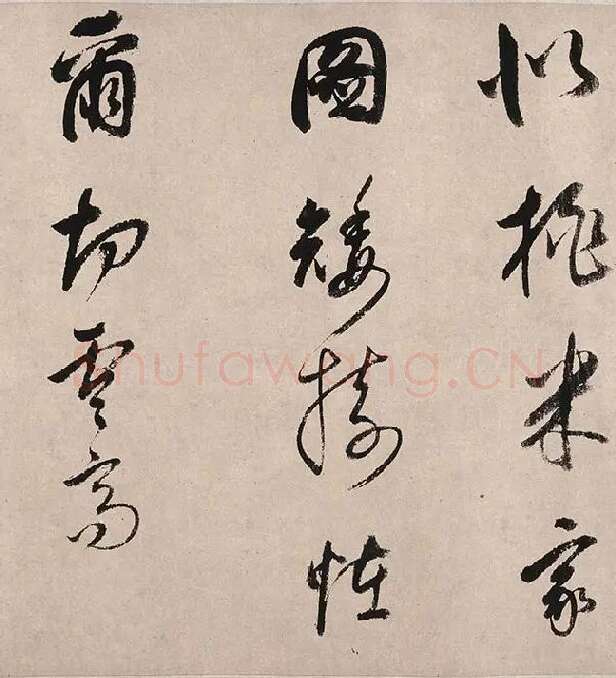 似米家
圖矮怪
爾切雲高
Shufawang.CN